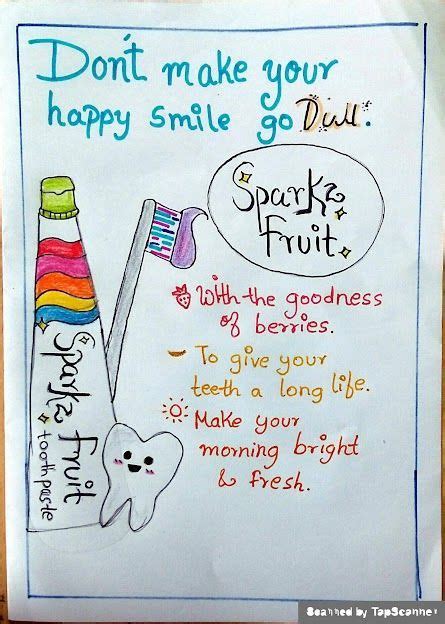 Don't make your
happy smile go Dull.
Sparkz
Fruit
With the goodness
of berries.
To give your
teeth a long life.
Make your
morning bright
& fresh.
Sparkz Fruit
toothpaste
Scanned by TapScanner